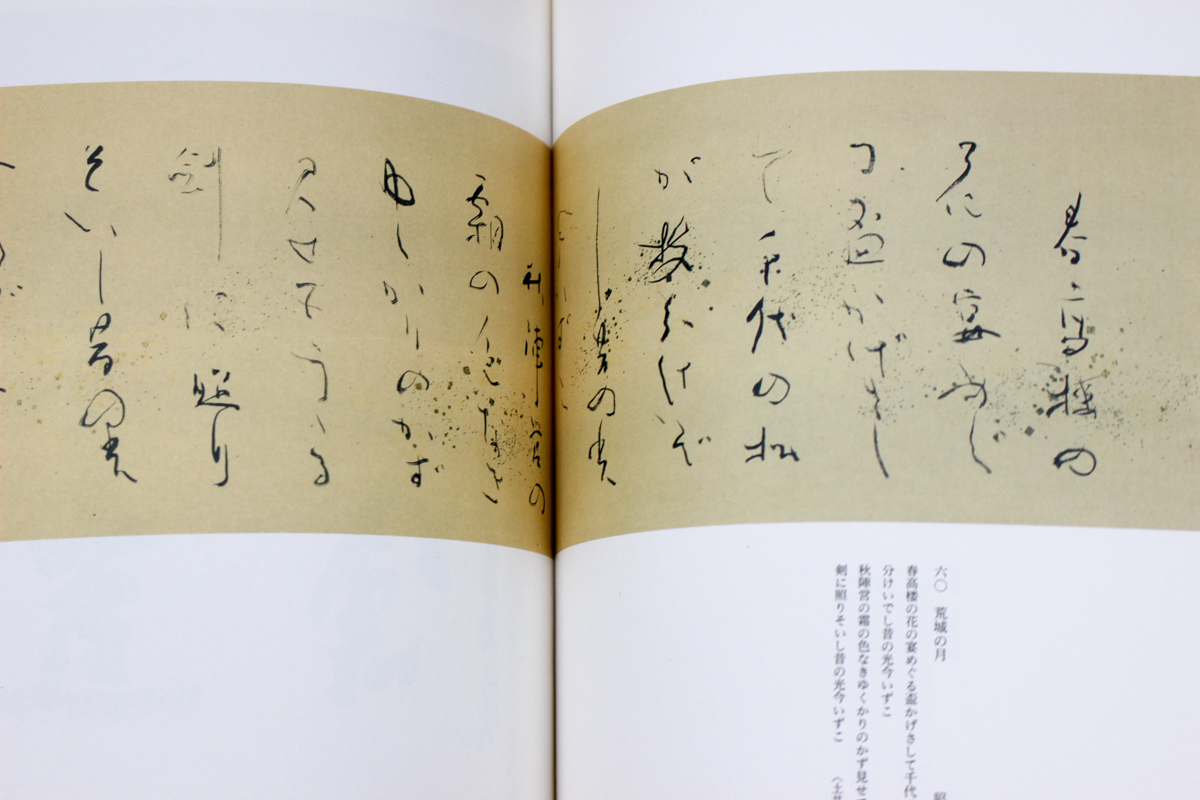 春高楼の
はなの宴めぐ
る盃かげさし
て千代の松
が枝分けいで
し昔の光
秋陣営の
霜の色なき
ゆくかりのかず
見せてうゝる
剣に照り
そいし昔の光
六〇 荒城の月 昭
春高楼の花の宴めぐる盃かげさして千代
分けいでし昔の光今いずこ
秋陣営の霜の色なきゆくかりのかず見せて
剣に照りそいし昔の光今いずこ